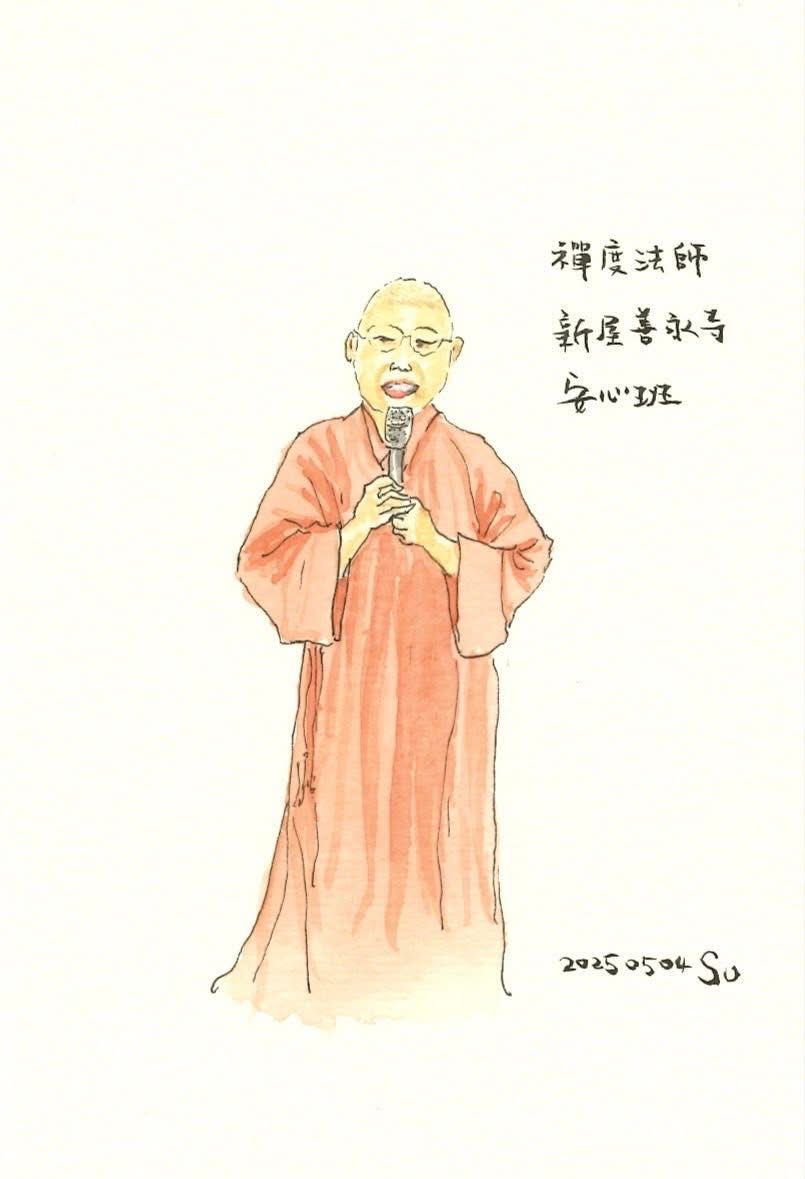 禪度法師
新屋善永寺
安心班
20250504 Su